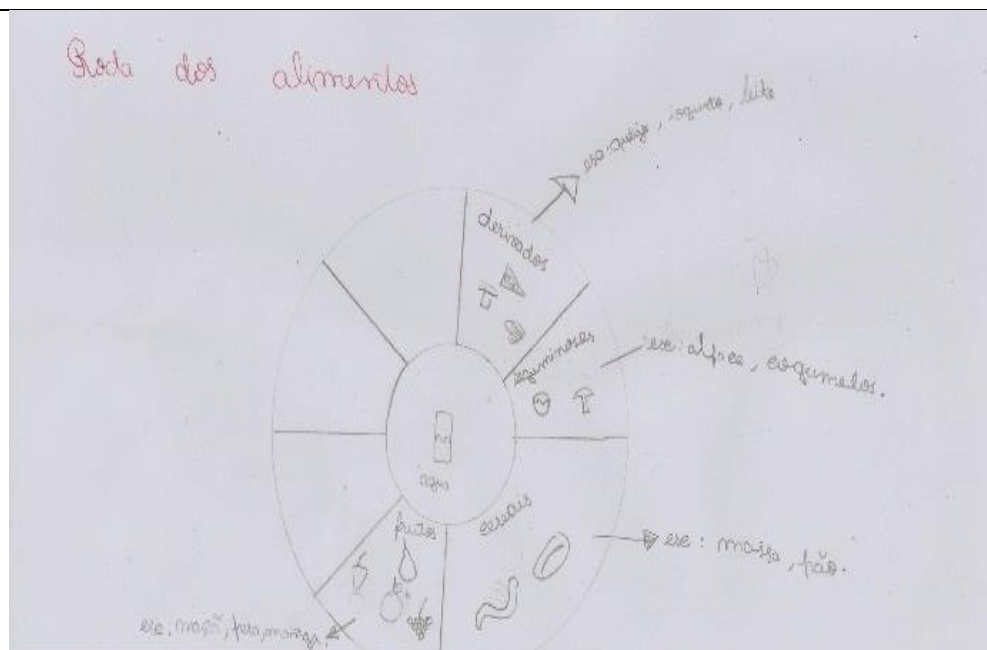 Roda dos alimentos
exe: queijo, iogurte, leite
derivados
leguminosas
exe: alface, cogumelos.
água
frutos
cereais
exe: massa, pão.
exe, maçã, pera, manga,